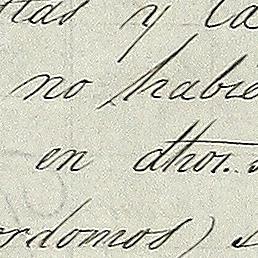 tas y la
no habie
en dhos.
ordomos)